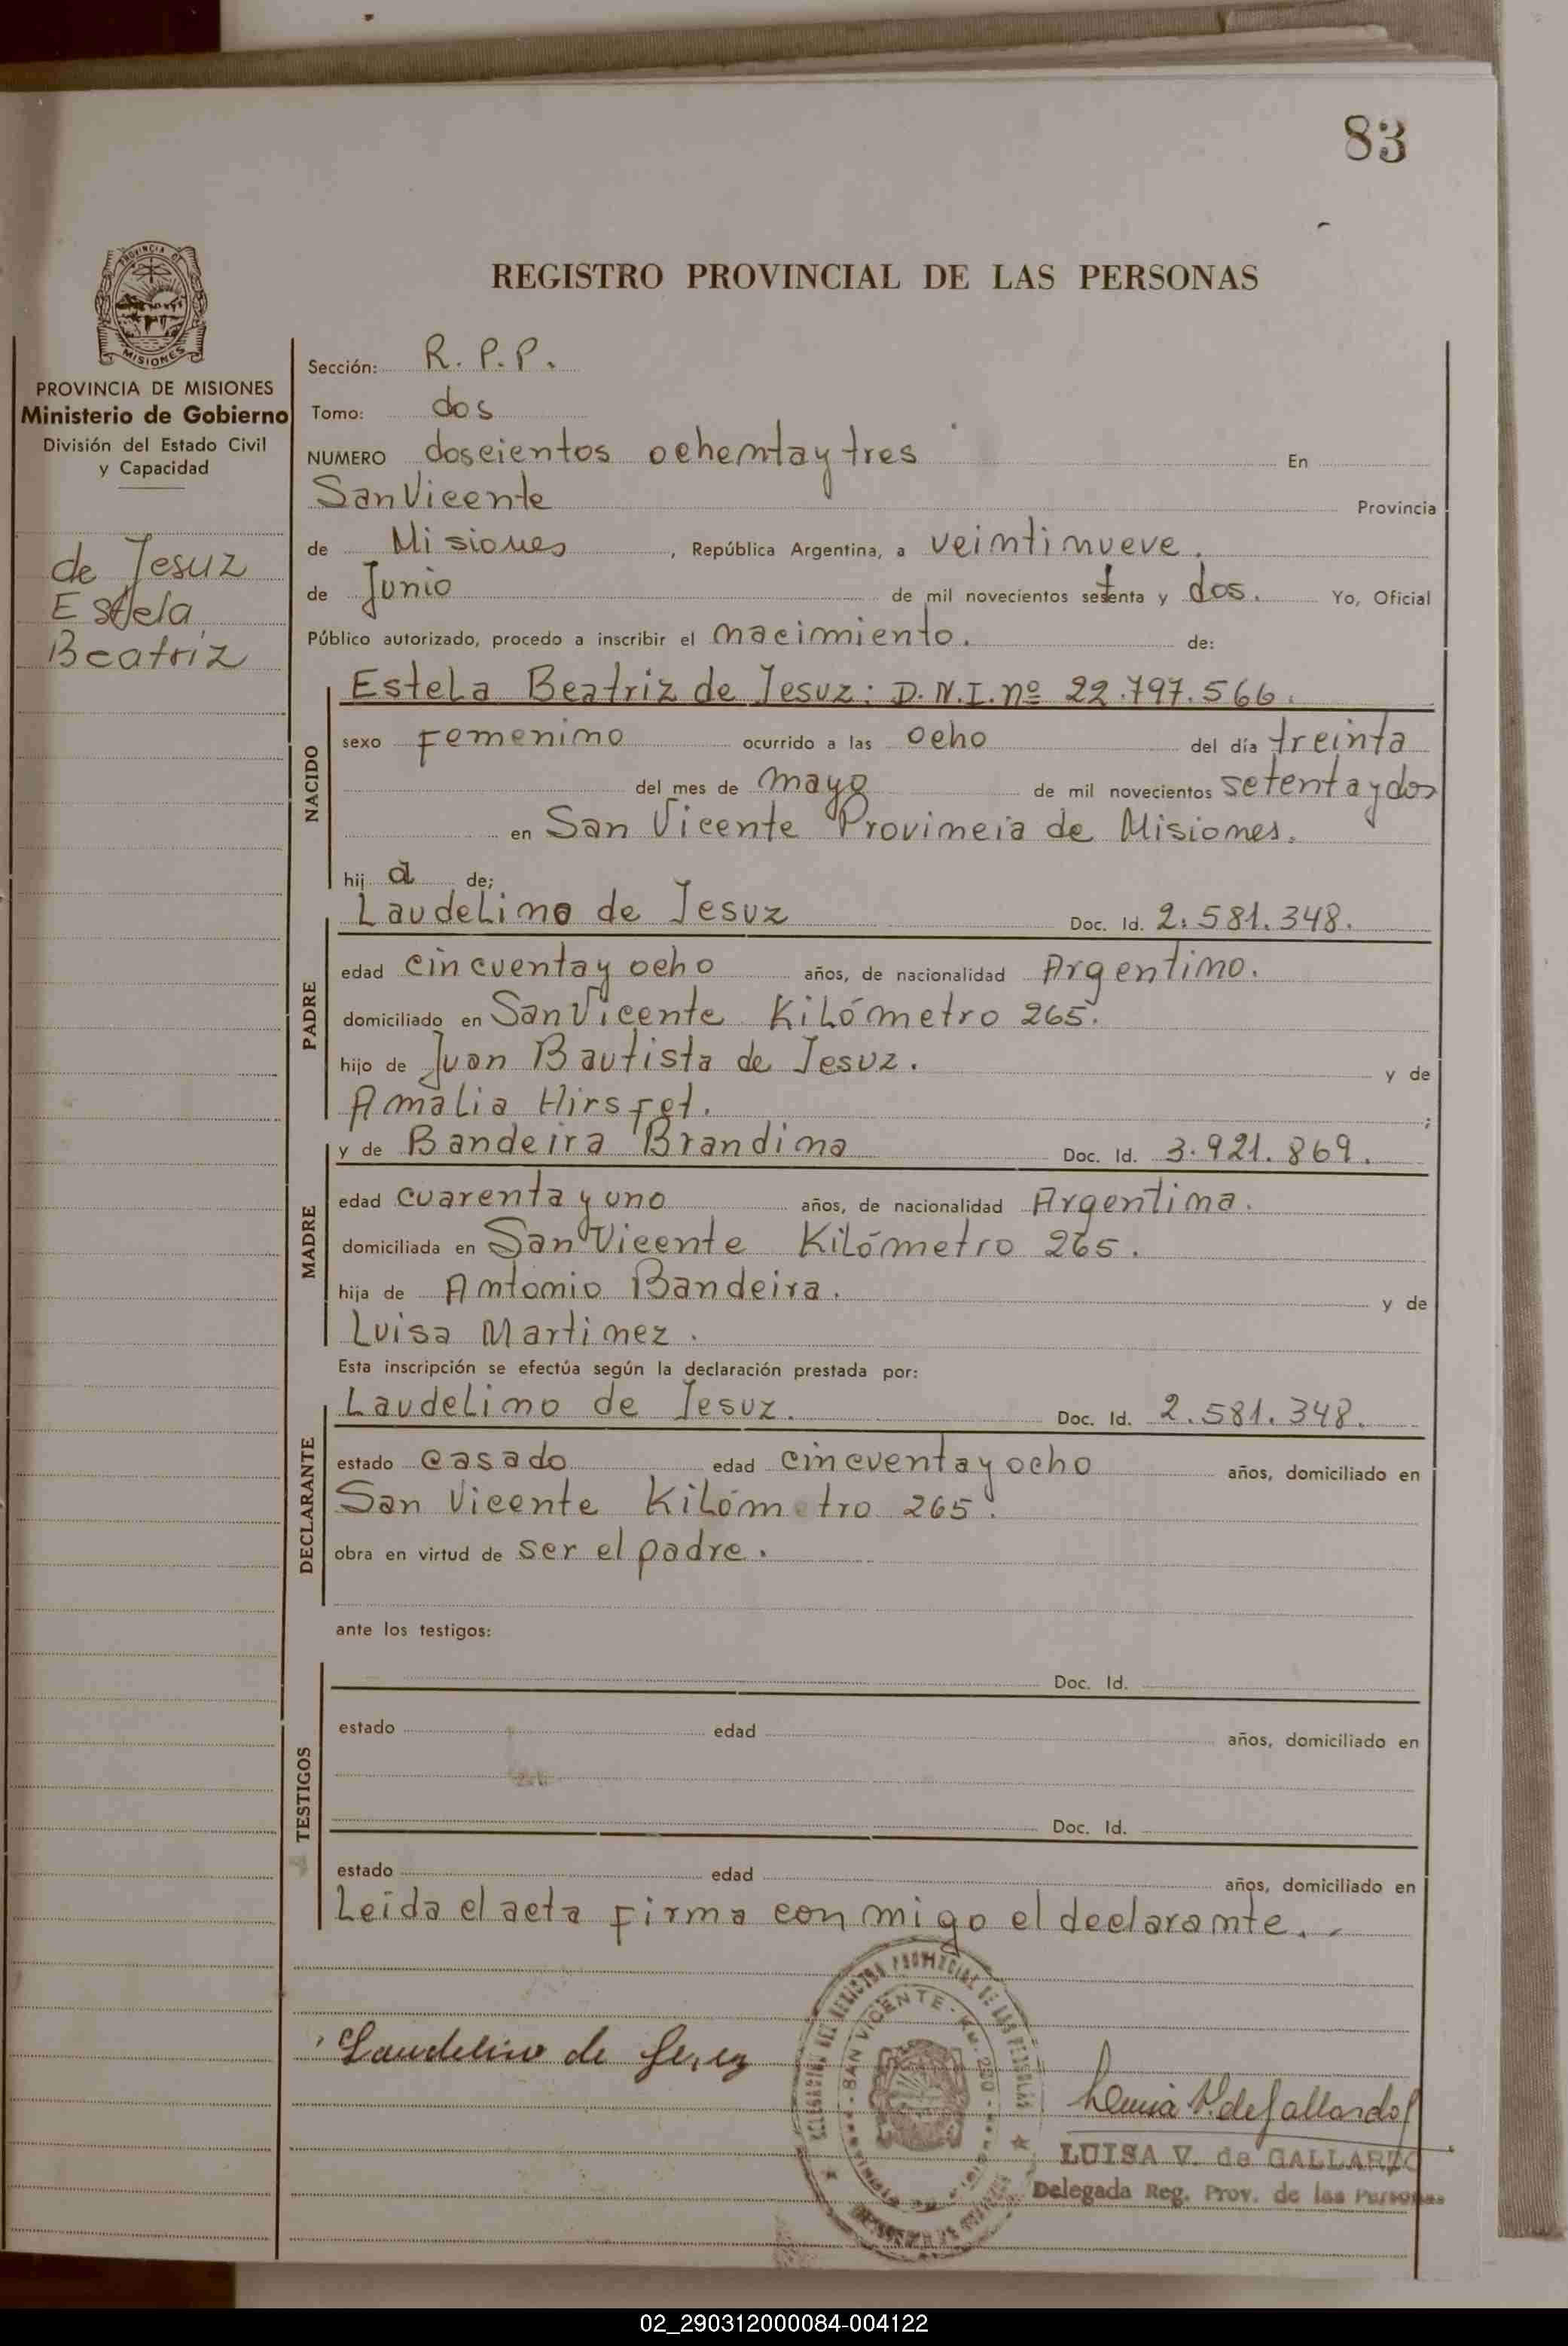 83
REGISTRO PROVINCIAL DE LAS PERSONAS
PROVINCIA DE
MISIONES
PROVINCIA DE MISIONES
Ministerio de Gobierno
División del Estado Civil
y Capacidad
de Jesuz
Estela
Beatriz
Sección: R. P. P.
Tomo: dos
NUMERO doscientos ochenta y tres En
San Vicente Provincia
de Misiones, República Argentina, a veintinueve.
de Junio de mil novecientos setenta y dos. Yo, Oficial
Público autorizado, procedo a inscribir el nacimiento. de:
NACIDO
Estela Beatriz de Jesuz: D.N.I. nº 22.797.566.
sexo Femenino ocurrido a las ocho del día treinta
del mes de mayo de mil novecientos setenta y dos
en San Vicente Provincia de Misiones.
hij a de;
PADRE
Laudelino de Jesuz Doc. Id. 2.581.348.
edad cincuenta y ocho años, de nacionalidad Argentino.
domiciliado en San Vicente Kilómetro 265.
hijo de Juan Bautista de Jesuz. y de
Amalia Hirsfet. ;
MADRE
y de Bandeira Brandina Doc. Id. 3.921.869.
edad cuarenta y uno años, de nacionalidad Argentina.
domiciliada en San Vicente Kilómetro 265.
hija de Antonio Bandeira. y de
Luisa Martinez.
Esta inscripción se efectúa según la declaración prestada por:
DECLARANTE
Laudelino de Jesuz. Doc. Id. 2.581.348.
estado casado edad cincuenta y ocho años, domiciliado en
San Vicente Kilómetro 265.
obra en virtud de ser el padre.
ante los testigos:
TESTIGOS
Doc. Id.
estado edad años, domiciliado en
Doc. Id.
estado edad años, domiciliado en
Leída el acta firma conmigo el declarante.
Laudelino de
DELEGACION DEL REGISTRO PROVINCIAL DE LAS PERSONAS
SAN VICENTE - Km. 280
V. de Gallardo
LUISA V. de GALLARDO
Delegada Reg. Prov. de las Personas
02_290312000084-004122